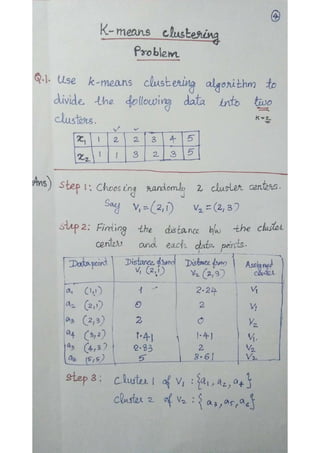 4
K-means clustering
Problem
Q.1. Use k-means clustering algorithm to
divide the following data into two
clusters. K=2
x1 1 2 2 3 4 5
x2 1 1 3 2 3 5
Ans) Step 1: Choosing randomly 2 cluster centers.
Say V1=(2,1) V2=(2,3)
Step 2: Finding the distance b/w the cluster
centers and each data points.
Data point Distance from V1 (2,1) Distance from V2 (2,3) Assigned cluster
a1 (1,1) 1 2.24 V1
a2 (2,1) 0 2 V1
a3 (2,3) 2 0 V2
a4 (3,2) 1.41 1.41 V1
a5 (4,3) 2.83 2 V2
a6 (5,5) 5 3.61 V2
Step 3: Cluster 1 of V1 : {a1, a2, a4}
Cluster 2 of V2 : {a3, a5, a6}